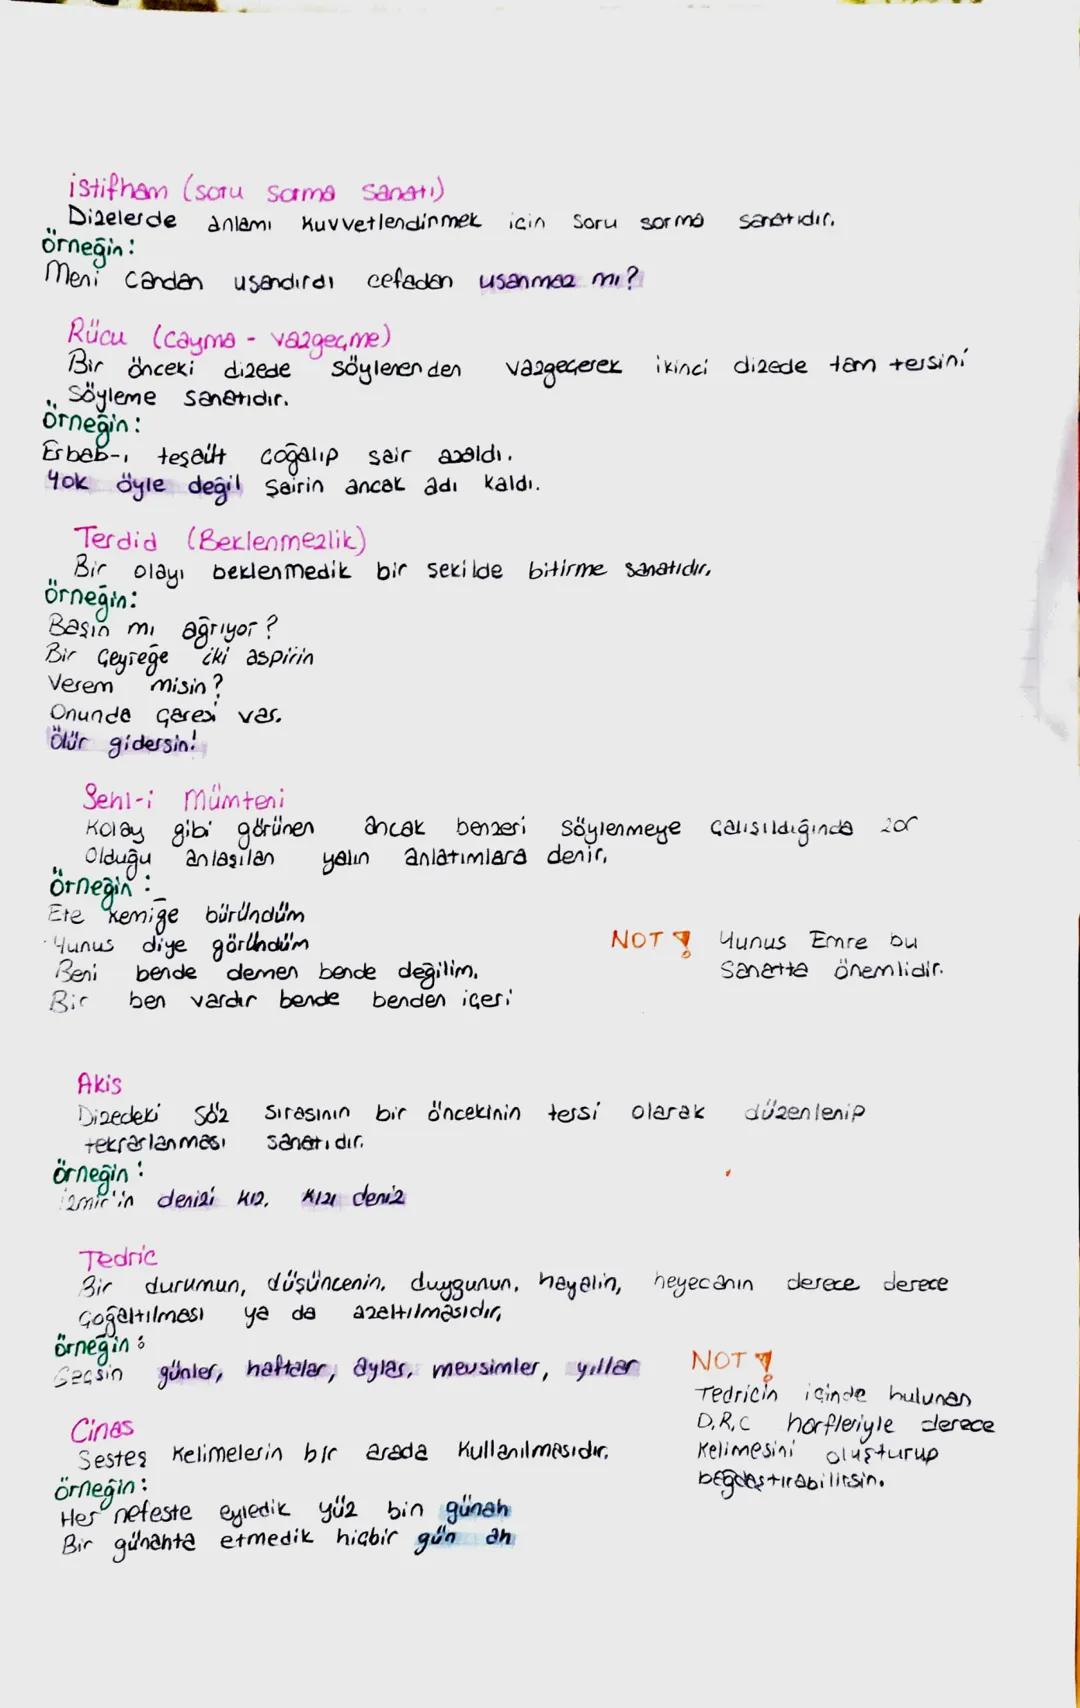 istifham (soru sorma sanatı)
Dizelerde anlamı kuvvetlendirmek için soru sorma sanatıdır.
örneğin:
Meni candan usandırdı cefadan usanmaz mı?
Rücu (cayma - vazgeçme)
Bir önceki dizede söylenenden vazgeçerek ikinci dizede tam tersini
Söyleme sanatıdır.
örneğin:
Erbab-ı çoğalıp şair azaldı.
Yok öyle değil şairin ancak adı kaldı.
Terdid (Beklenmezlik)
Bir olayı beklenmedik bir şekilde bitirme sanatıdır.
örneğin:
Başın mı ağrıyor?
Bir çeyreğe iki aspirin
Verem misin?
Onunda çaresi var.
Ölür gidersin!
Sehl-i Mümteni
Kolay gibi görünen ancak benzeri söylenmeye çalışıldığında zor
Olduğu anlaşılan yalın anlatımlara denir.
örneğin:
Ete kemiğe büründüm
Yunus diye göründüm
Beni bende demen bende değilim.
Bir ben vardır bende benden içeri
NOT! Yunus Emre bu
Sanatta önemlidir.
Akis
Dizedeki söz sırasının bir öncekinin tersi olarak düzenlenip
tekrarlanması sanatıdır.
örneğin:
izmir'in denizi kız, kızı deniz
Tedric
Bir durumun, düşüncenin, duygunun, hayalin, heyecanın derece derece
Çoğaltılması ya da azaltılmasıdır.
örneğin:
Geçsin günler, haftalar, aylar, mevsimler, yıllar
NOT!
Tedricin içinde bulunan
D,R,C harfleriyle derece
Kelimesini oluşturup
bağdaştırabilirsin.
Cinas
Sesteş kelimelerin bir arada kullanılmasıdır.
örneğin:
Her nefeste eyledik yüz bin günah
Bir günahta etmedik hiçbir gün ah